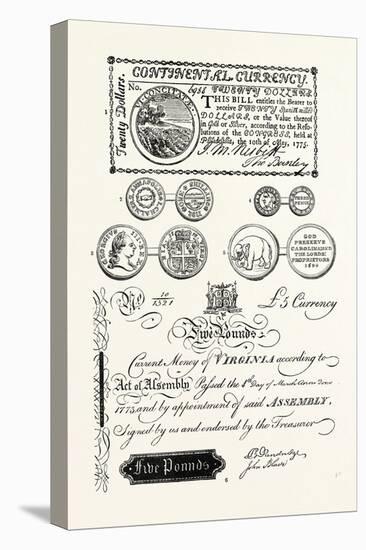 CONTINENTAL CURRENCY.
No. 6958 TWENTY DOLLARS
Twenty Dollars.
VI CONCITATÆ
THIS BILL entitles the Bearer to
receive TWENTY Spanish milled
DOLLARS, or the Value thereof
in Gold or Silver, according to the Reso-
lutions of the CONGRESS, held at
Philadelphia, the 10th of May, 1775.
J. M. Nesbitt
GOD
PRESERVE
CAROLINA AND
THE LORDS
PROPRIETORS
1694
No 10/1521
£5 Currency
Five Pounds
Current Money of VIRGINIA according to
Act of Assembly Passed the 4th Day of March
1773, and by appointment of said ASSEMBLY,
Signed by us and endorsed by the Treasurer
Five Pounds
John Blair
6